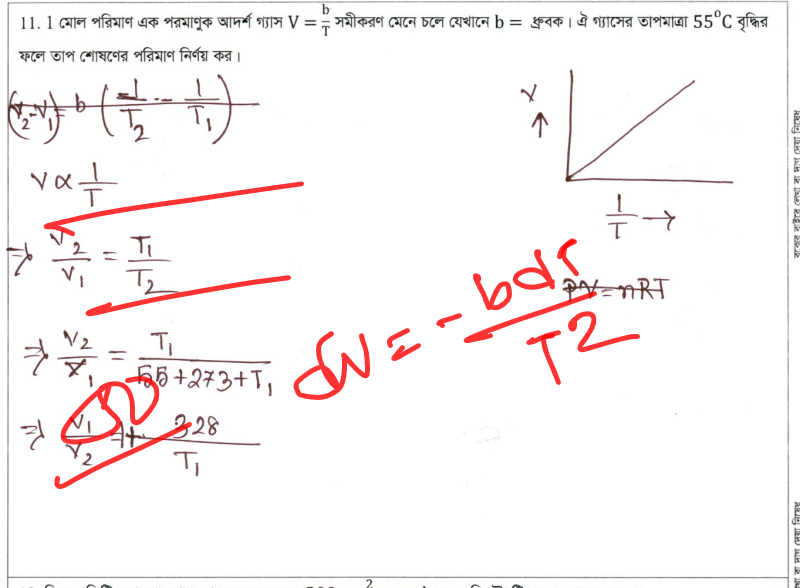 11. 1 মোল পরিমাণ এক পরমাণুক আদর্শ গ্যাস V = b/T সমীকরণ মেনে চলে যেখানে b = ধ্রুবক। ঐ গ্যাসের তাপমাত্রা 55⁰C বৃদ্ধির
ফলে তাপ শোষণের পরিমাণ নির্ণয় কর।
(V₂-V₁) = b (1/T₂ - 1/T₁)
V ∝ 1/T
⇒ V₂/V₁ = T₁/T₂
⇒ V₂/V₁ = T₁/(55+273+T₁)
⇒ V₁/V₂ = 1+ 328/T₁
V ↑
1/T →
PV = nRT
dV = -bdT/T²